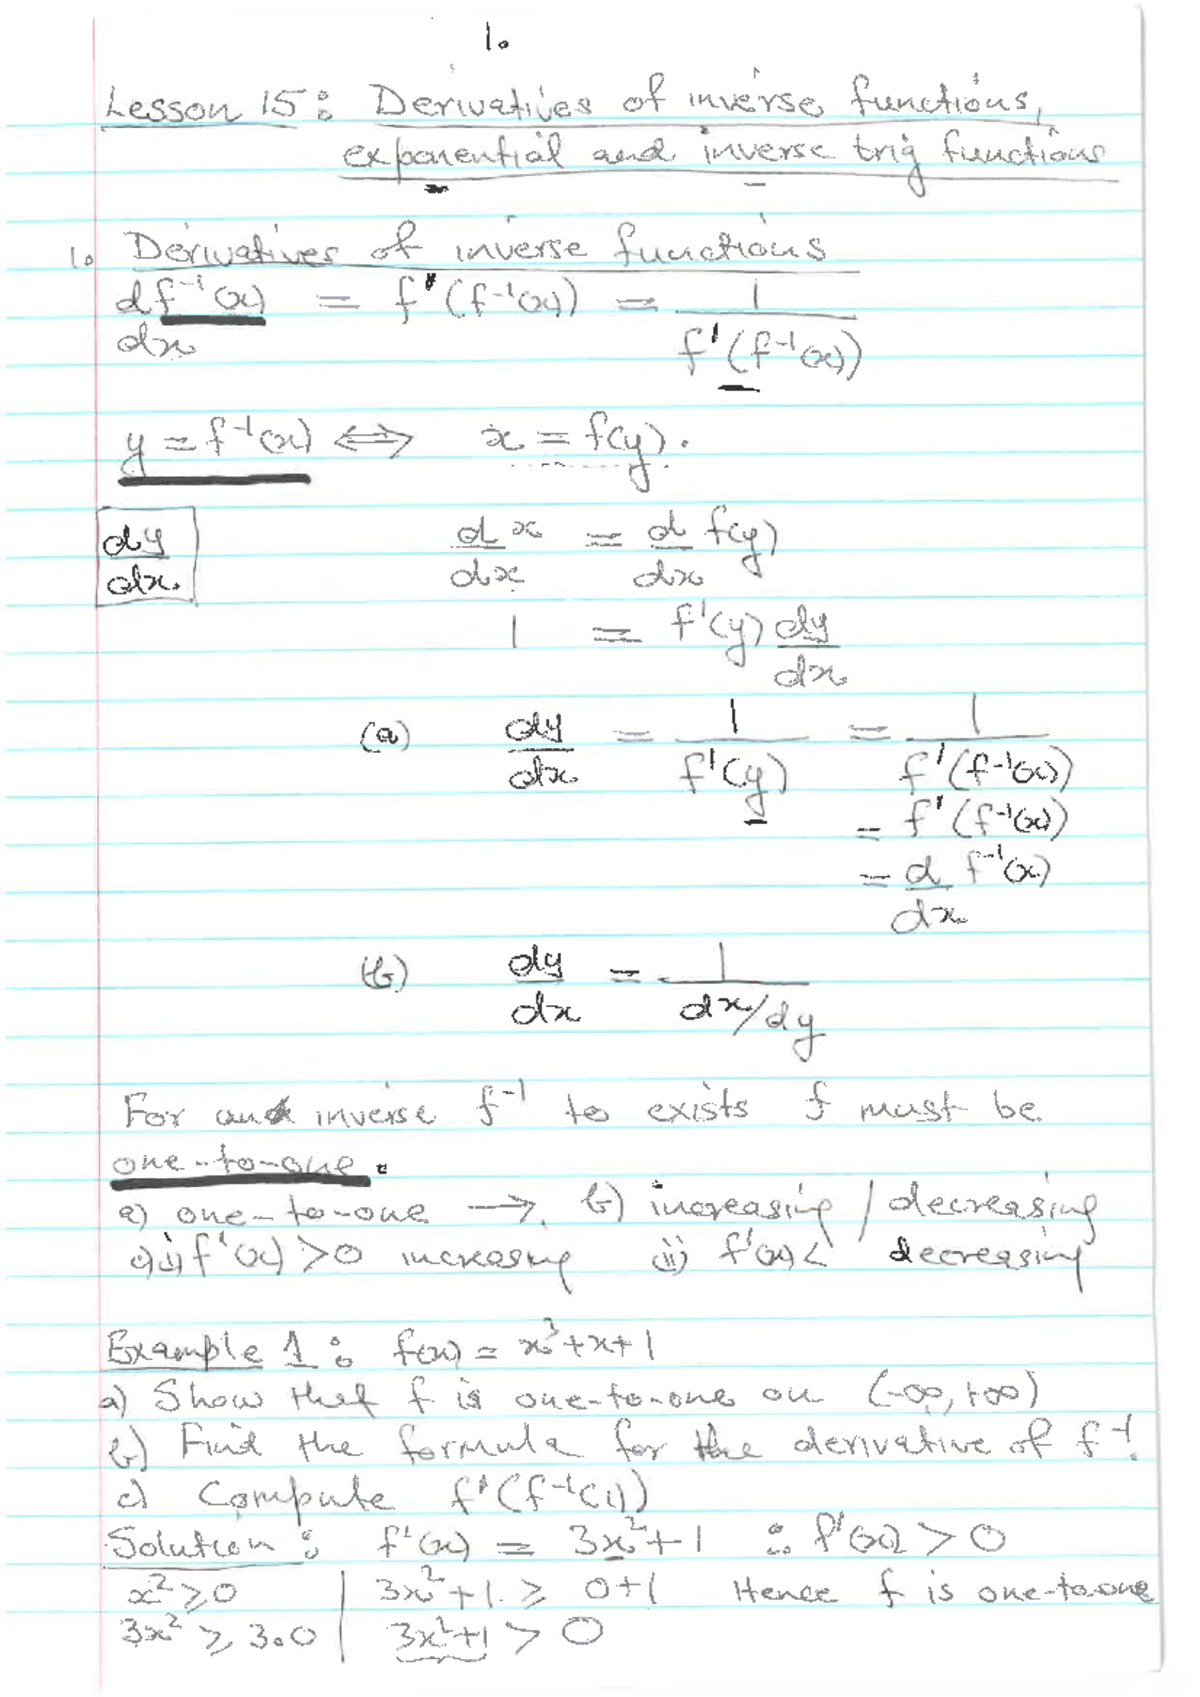 1.
Lesson 15: Derivatives of inverse functions,
exponential and inverse trig functions
1. Derivatives of inverse functions
d f⁻¹(x)/dx = f'(f⁻¹(x)) = 1/f'(f⁻¹(x))
y = f⁻¹(x) ⟺ x = f(y).
dy/dx. d/dx x = d/dx f(y)
1 = f'(y) dy/dx
(a) dy/dx = 1/f'(y) = 1/f'(f⁻¹(x))
= f'(f⁻¹(x))
= d/dx f⁻¹(x)
(b) dy/dx = 1/dx/dy
For and inverse f⁻¹ to exists f must be
one-to-one.
a) one-to-one → b) increasing / decreasing
c) i) f'(x) > 0 increasing ii) f'(x) < decreasing
Example 1: f(x) = x³+x+1
a) Show that f is one-to-one on (-∞, +∞)
b) Find the formula for the derivative of f⁻¹.
c) Compute f'(f⁻¹(1))
Solution: f'(x) = 3x²+1 ∴ f'(x) > 0
x² ≥ 0 | 3x²+1 ≥ 0+1 Hence f is one-to-one
3x² ≥ 3.0 | 3x²+1 > 0